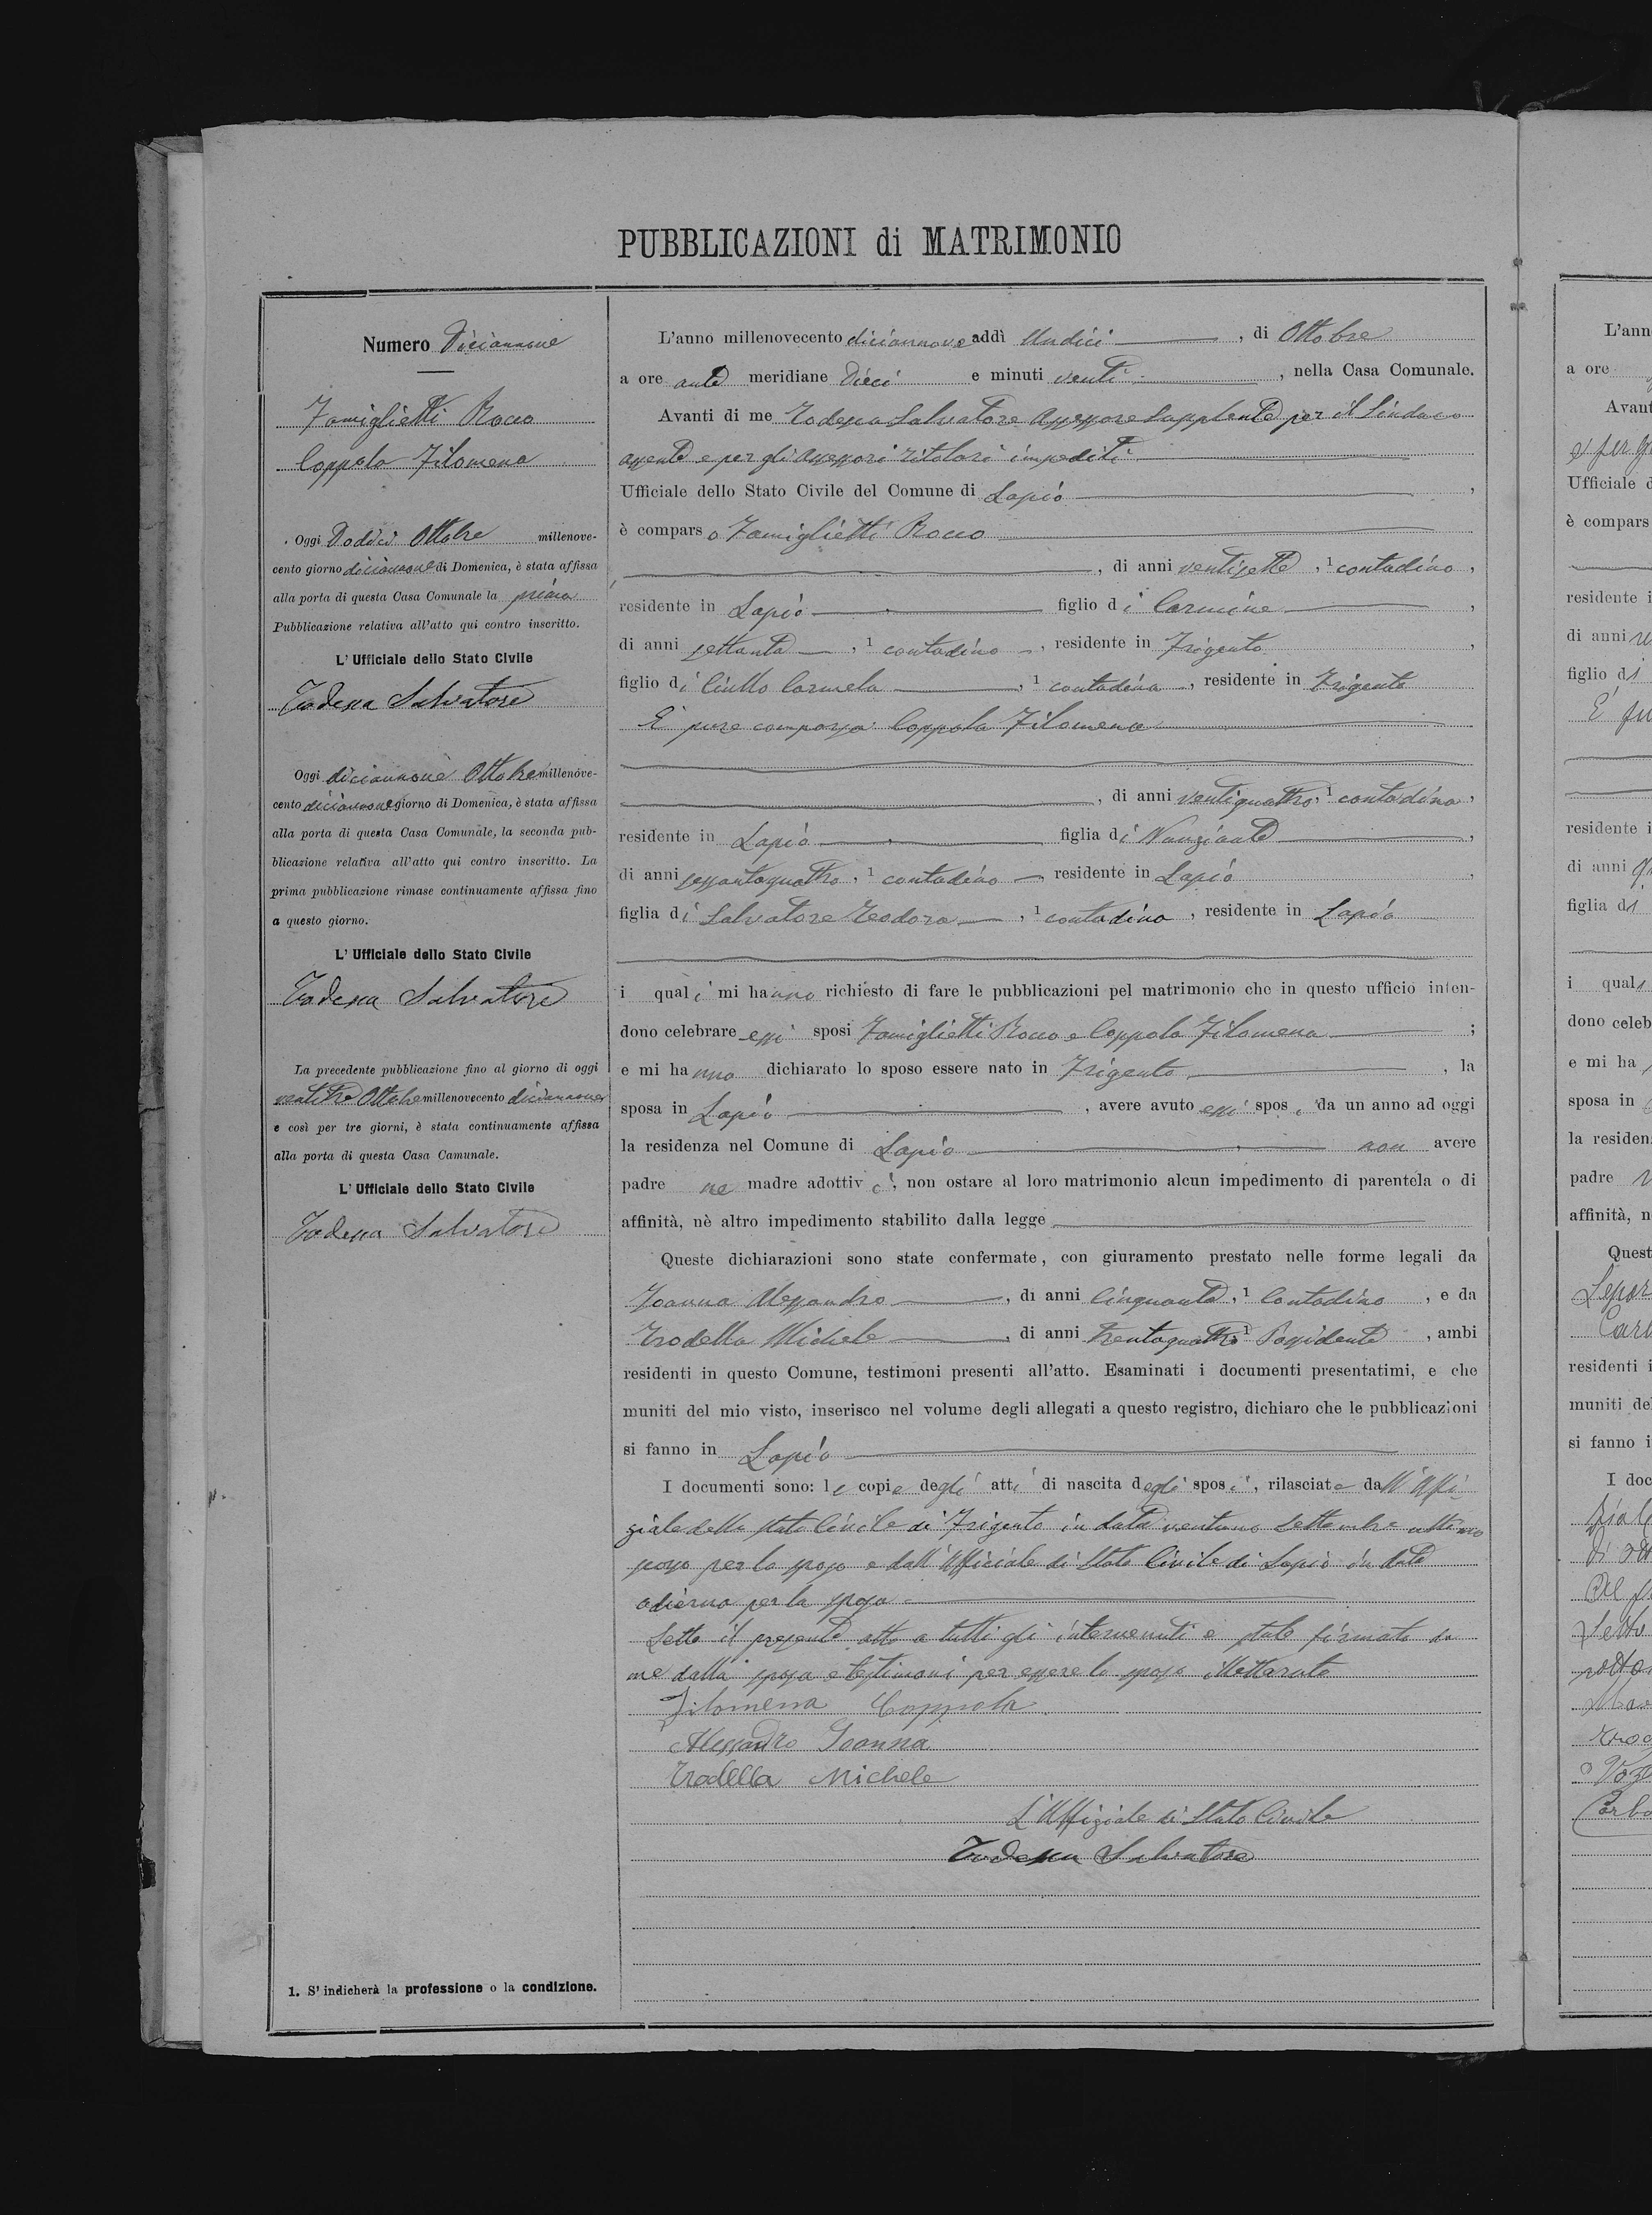 PUBBLICAZIONI di MATRIMONIO
Numero Diciannove
Famiglietti Rocco
Coppola Filomena
Oggi Dodici Ottobre millenove-
cento giorno diciannove di Domenica, è stata affissa
alla porta di questa Casa Comunale la prima
Pubblicazione relativa all'atto qui contro inscritto.
L'Ufficiale dello Stato Civile
Salvatore
Oggi diciannove Ottobre millenove-
cento diciannove giorno di Domenica, è stata affissa
alla porta di questa Casa Comunale, la seconda pub-
blicazione relativa all'atto qui contro inscritto. La
prima pubblicazione rimase continuamente affissa fino
a questo giorno.
L'Ufficiale dello Stato Civile
Salvatore
La precedente pubblicazione fino al giorno di oggi
ventitre Ottobre millenovecento diciannove
e così per tre giorni, è stata continuamente affissa
alla porta di questa Casa Camunale.
L'Ufficiale dello Stato Civile
Salvatore
1. S'indicherà la professione o la condizione.
L'anno millenovecento diciannove addì Undici, di Ottobre
a ore ante meridiane Dieci e minuti venti, nella Casa Comunale.
Avanti di me Salvatore Assessore Supplente per il Sindaco
assente e per gli assessori titolari impediti
Ufficiale dello Stato Civile del Comune di Lapio,
è comparso Famiglietti Rocco
, di anni ventisette, 1 contadino,
residente in Lapio figlio di Carmine,
di anni settanta, 1 contadino, residente in Frigento,
figlio di Ciullo Carmela, 1 contadina, residente in Frigento
E' pure comparsa Coppola Filomena
, di anni ventiquattro, 1 contadina,
residente in Lapio figlia di Nunziante,
di anni sessantaquattro, 1 contadino, residente in Lapio,
figlia di Salvatore Teodora, 1 contadina, residente in Lapio
i quali mi hanno richiesto di fare le pubblicazioni pel matrimonio che in questo ufficio inten-
dono celebrare essi sposi Famiglietti Rocco e Coppola Filomena;
e mi hanno dichiarato lo sposo essere nato in Frigento, la
sposa in Lapio, avere avuto essi sposi da un anno ad oggi
la residenza nel Comune di Lapio non avere
padre ne madre adottivi, non ostare al loro matrimonio alcun impedimento di parentela o di
affinità, nè altro impedimento stabilito dalla legge
Queste dichiarazioni sono state confermate, con giuramento prestato nelle forme legali da
Joanna Alessandro, di anni Cinquanta, 1 Contadino, e da
Trodella Michele, di anni trentaquattro 1 Possidente, ambi
residenti in questo Comune, testimoni presenti all'atto. Esaminati i documenti presentatimi, e che
muniti del mio visto, inserisco nel volume degli allegati a questo registro, dichiaro che le pubblicazioni
si fanno in Lapio
I documenti sono: le copie degli atti di nascita degli sposi, rilasciate dall'Uffi-
ziale dello Stato Civile di Frigento in data ventuno Settembre ultimo
per lo sposo e dall'Ufficiale di Stato Civile di Lapio in data
odierna per la sposa
Letto il presente atto a tutti gli intervenuti e stato firmato da
me dalla sposa e testimoni per essere lo sposo illetterato
Filomena Coppola
Alessandro Joanna
Trodella Michele
L'Uffiziale di Stato Civile
Salvatore
L'ann
a ore
Avant
Ufficiale d
è compars
residente i
di anni
figlio di
residente i
di anni
figlia di
i quali
dono celeb
e mi ha
sposa in
la residen
padre
affinità, n
Quest
residenti i
muniti de
si fanno i
I doc